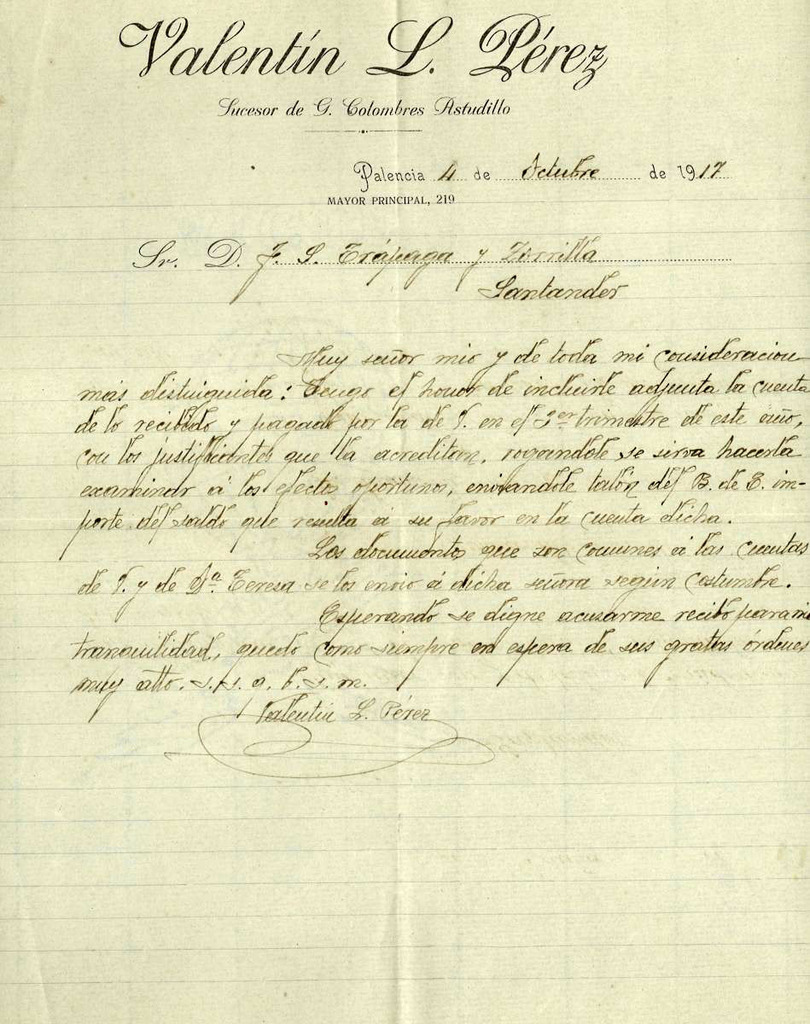 Valentín L. Pérez
Sucesor de G. Colombres Astudillo
Palencia 4 de Octubre de 1917
MAYOR PRINCIPAL, 219
Sr. D. F. S. Trápaga y Zorrilla
Santander
Muy señor mio y de toda mi consideracion
más distinguida: Tengo el honor de incluirle adjunta la cuenta
de lo recibido y pagado por la de V. en el 3er trimestre de este año,
con los justificantes que la acreditan, rogandole se sirva hacerla
examinar á los efectos oportunos, enviandole talón del B. de E. im-
porte del saldo que resulta á su favor en la cuenta dicha.
Los documentos que son comunes á las cuentas
de V. y de Dª. Teresa se los envio á dicha señora según costumbre.
Esperando se digne acusarme recibo para mi
tranquilidad, quedo como siempre en espera de sus gratas órdenes
muy atto. s. s. q. b. s. m.
Valentin L. Pérez